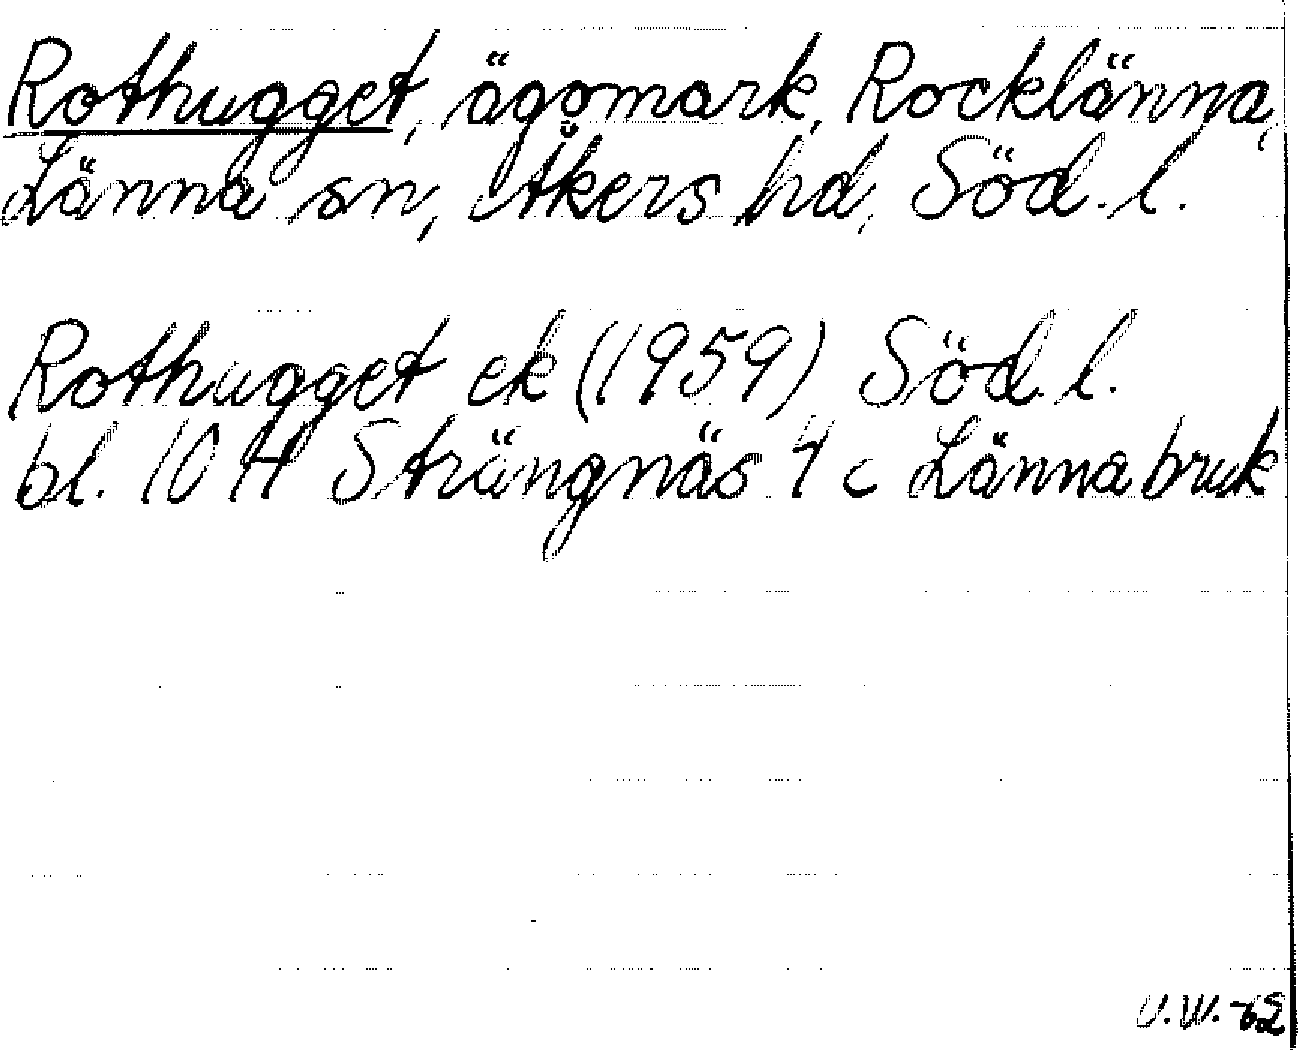 Rothugget, ägomark, Rocklänna,
Länna sn, Åkers hd, Söd. l.
Rothugget ek (1959) Söd. l.
bl. 10 H Strängnäs 4 c Länna bruk
U.W. -62